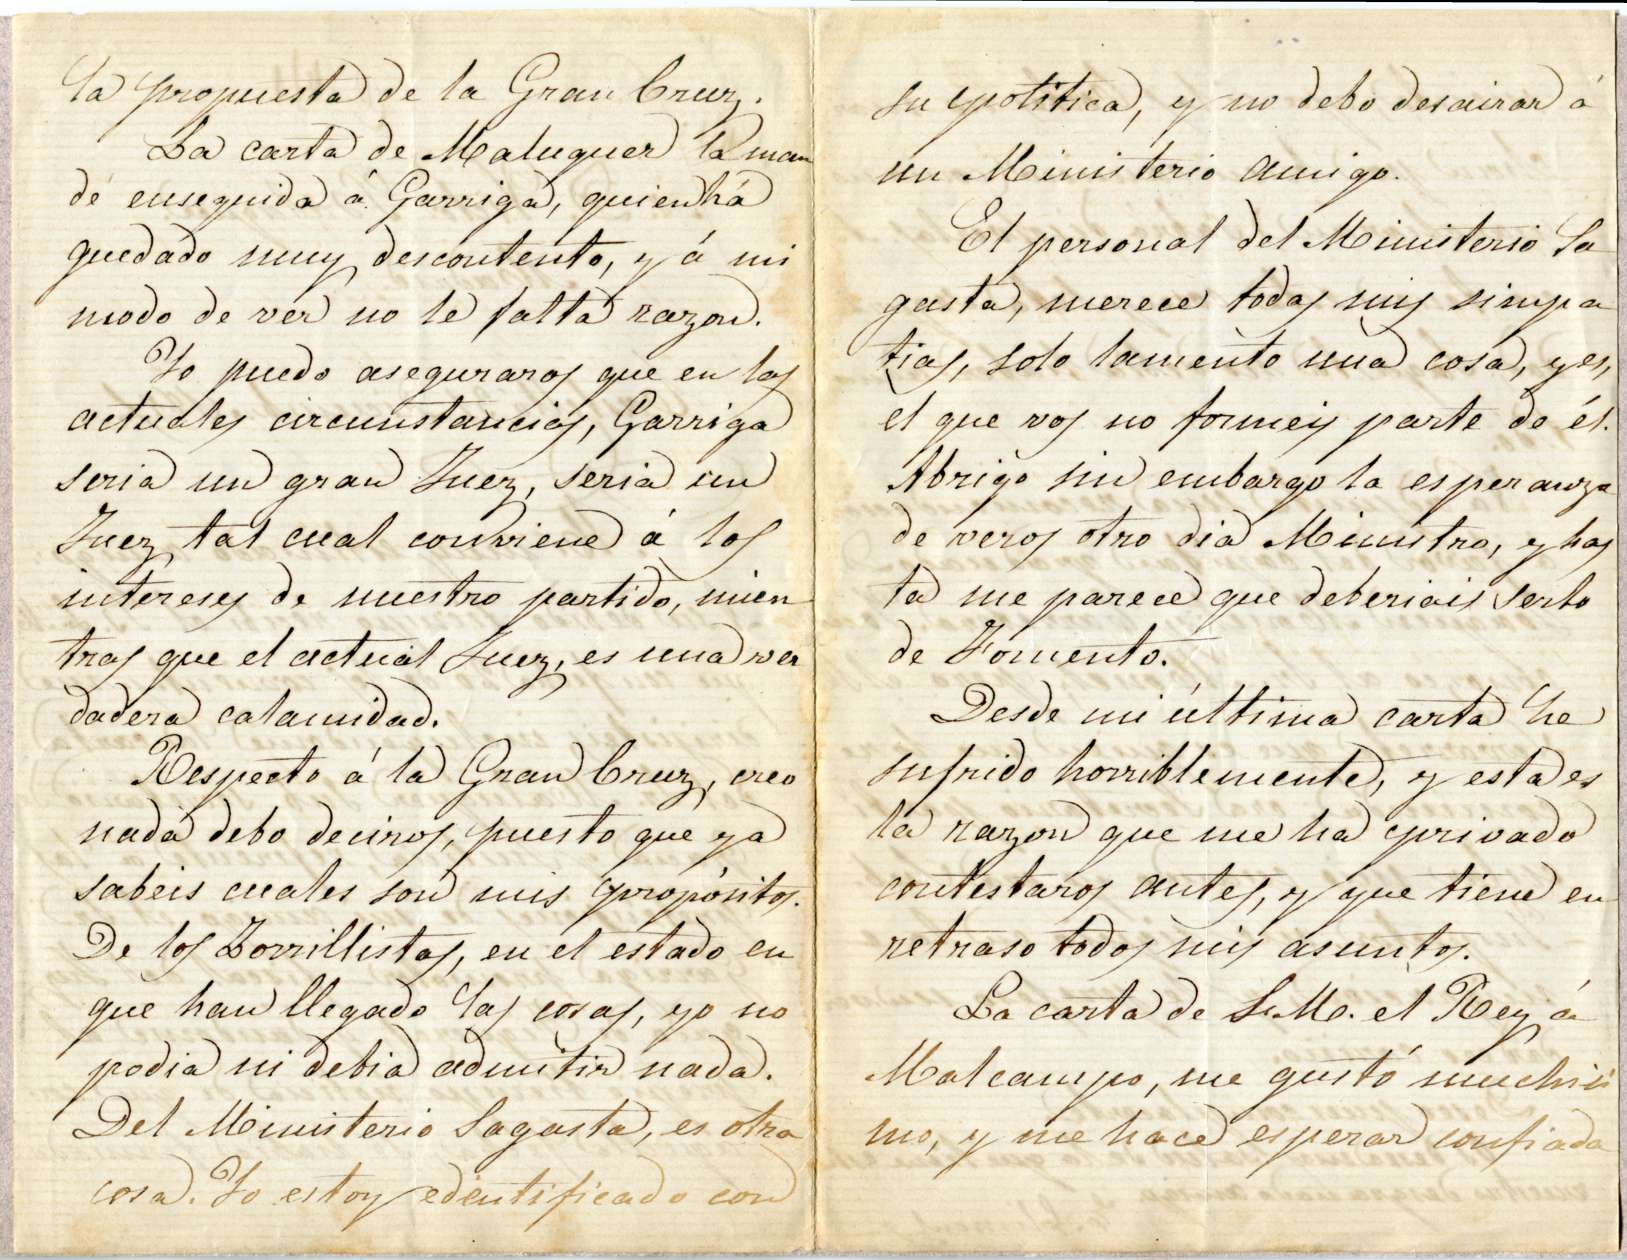 la propuesta de la Gran Cruz.
La carta de Maluquer la man
dé enseguida á Garriga, quien há
quedado muy descontento, y á mi
modo de ver no le falta razon.
Yo puedo aseguraros que en las
actuales circunstancias, Garriga
seria un gran Juez, seria un
Juez tal cual conviene á los
intereses de nuestro partido, mien
tras que el actual Juez, es una ver
dadera calamidad.
Respecto á la Gran Cruz, creo
nada debo deciros, puesto que ya
sabeis cuales son mis propósitos.
De los Zorrillistas, en el estado en
que han llegado las cosas, yo no
podia ni debia admitir nada.
Del Ministerio Sagasta, es otra
cosa. Yo estoy edentificado con
su politica, y no debo desairar á
un Ministerio amigo.
El personal del Ministerio Sa
gasta, merece todas mis simpa
tias, solo lamento una cosa, y es,
el que vos no formeis parte de él.
Abrigo sin embargo la esperanza
de veros otro dia Ministro, y has
ta me parece que deberiais serlo
de Fomento.
Desde mi última carta he
sufrido horriblemente, y esta es
la razon que me ha privado
contestaros antes, y que tiene en
retraso todos mis asuntos.
La carta de S. M. el Rey á
Malcampo, me gustó muchisi
mo, y me hace esperar confiada